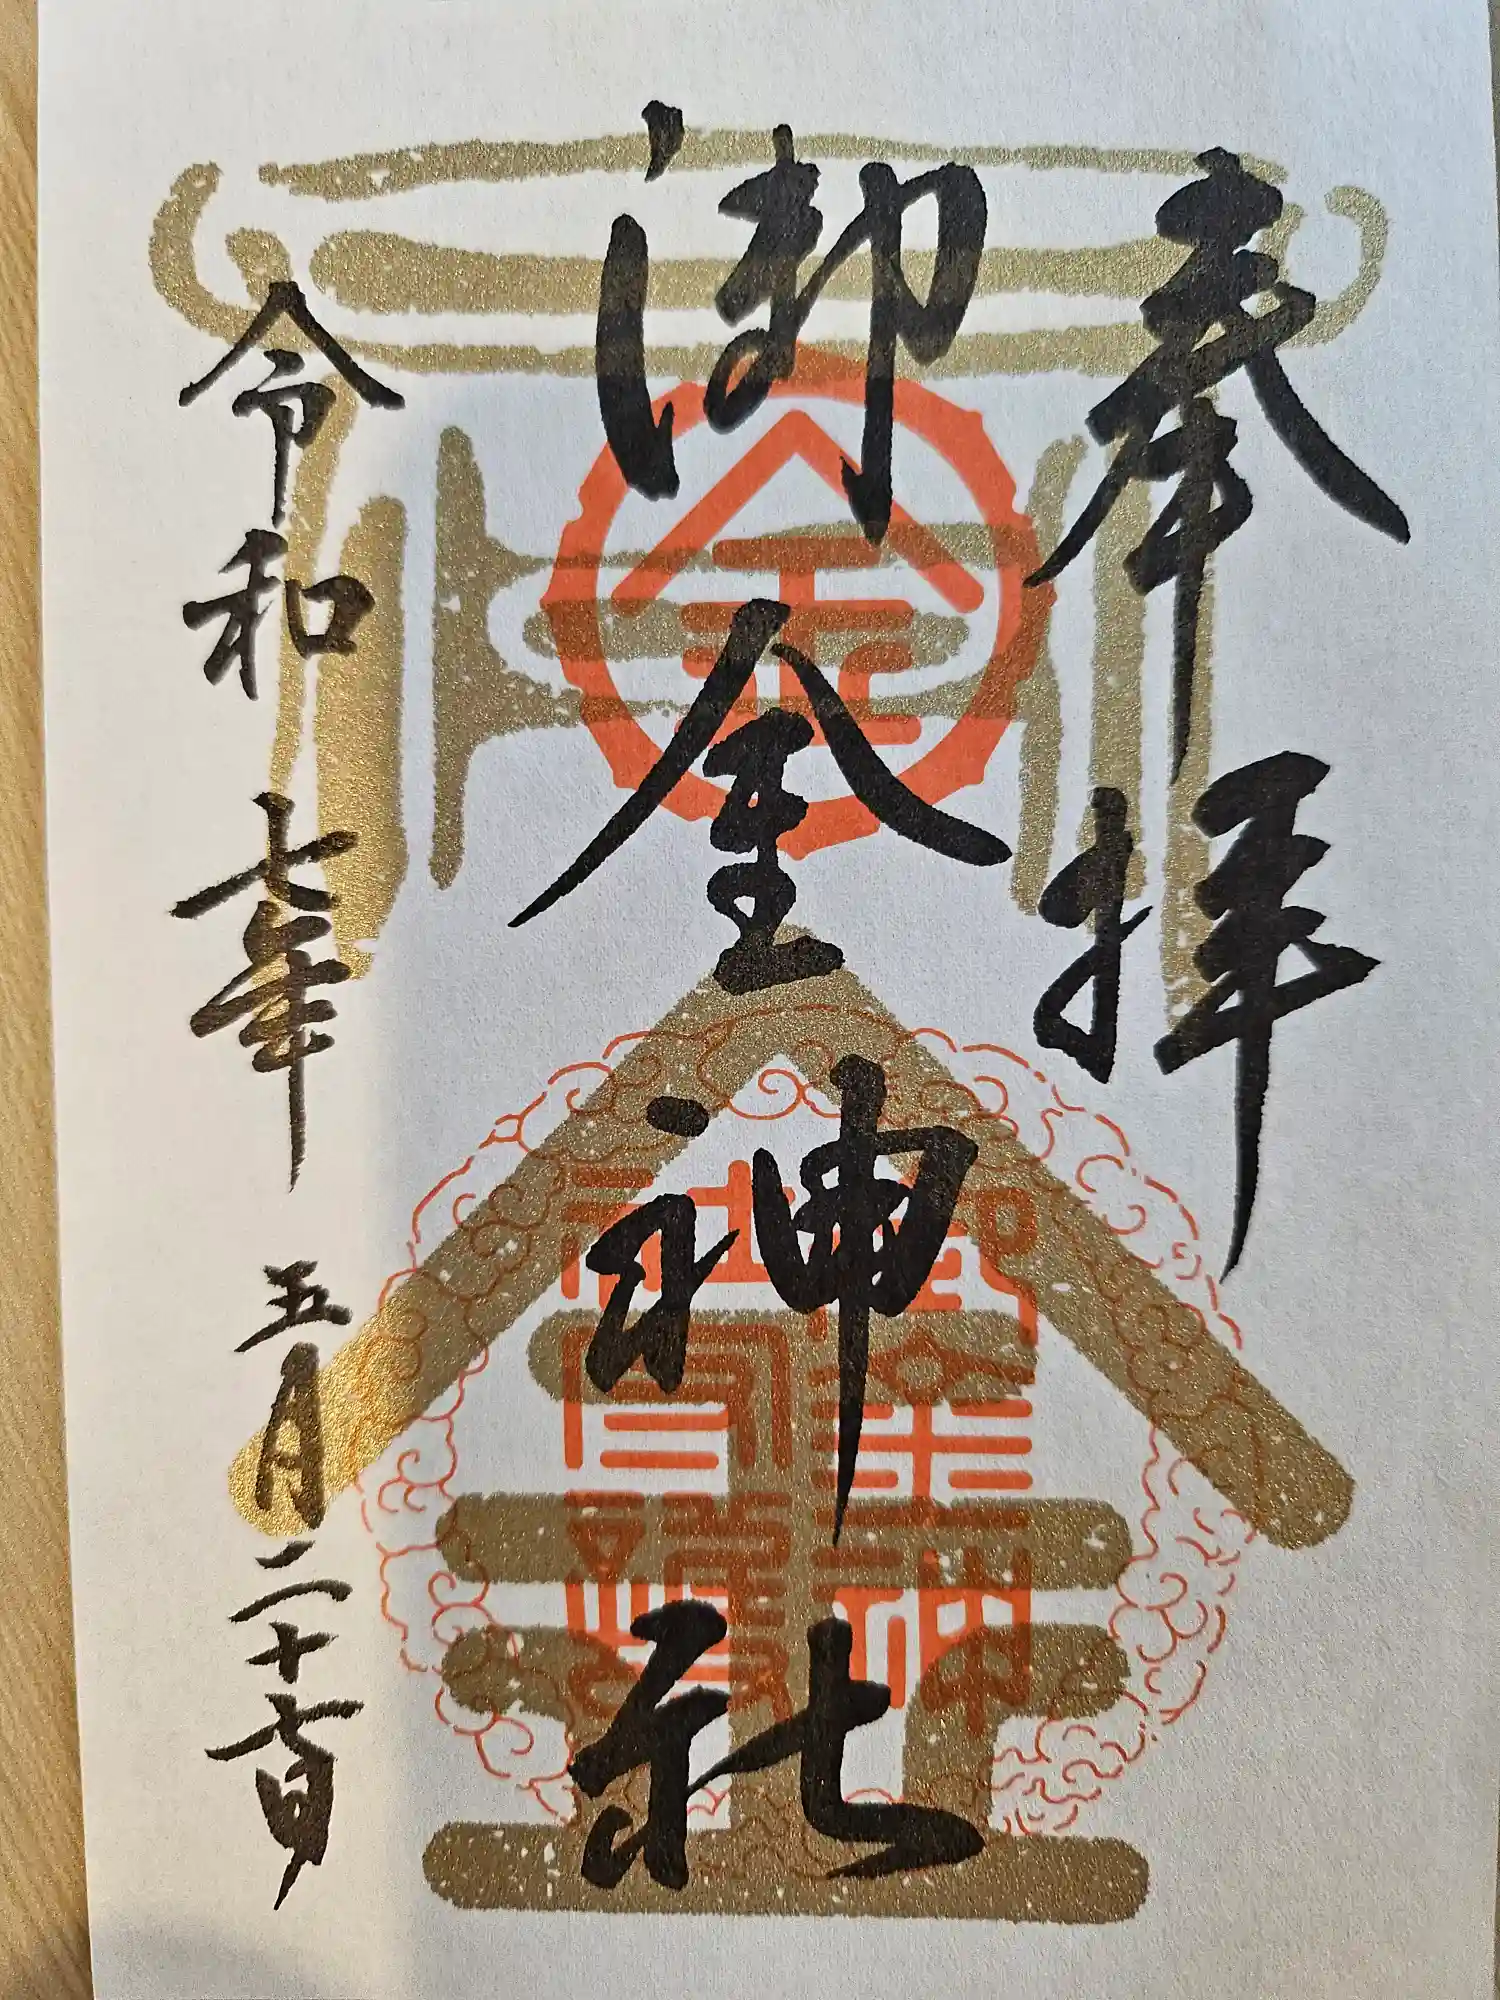 奉拝
御金神社
令和七年五月二十七日
金
金